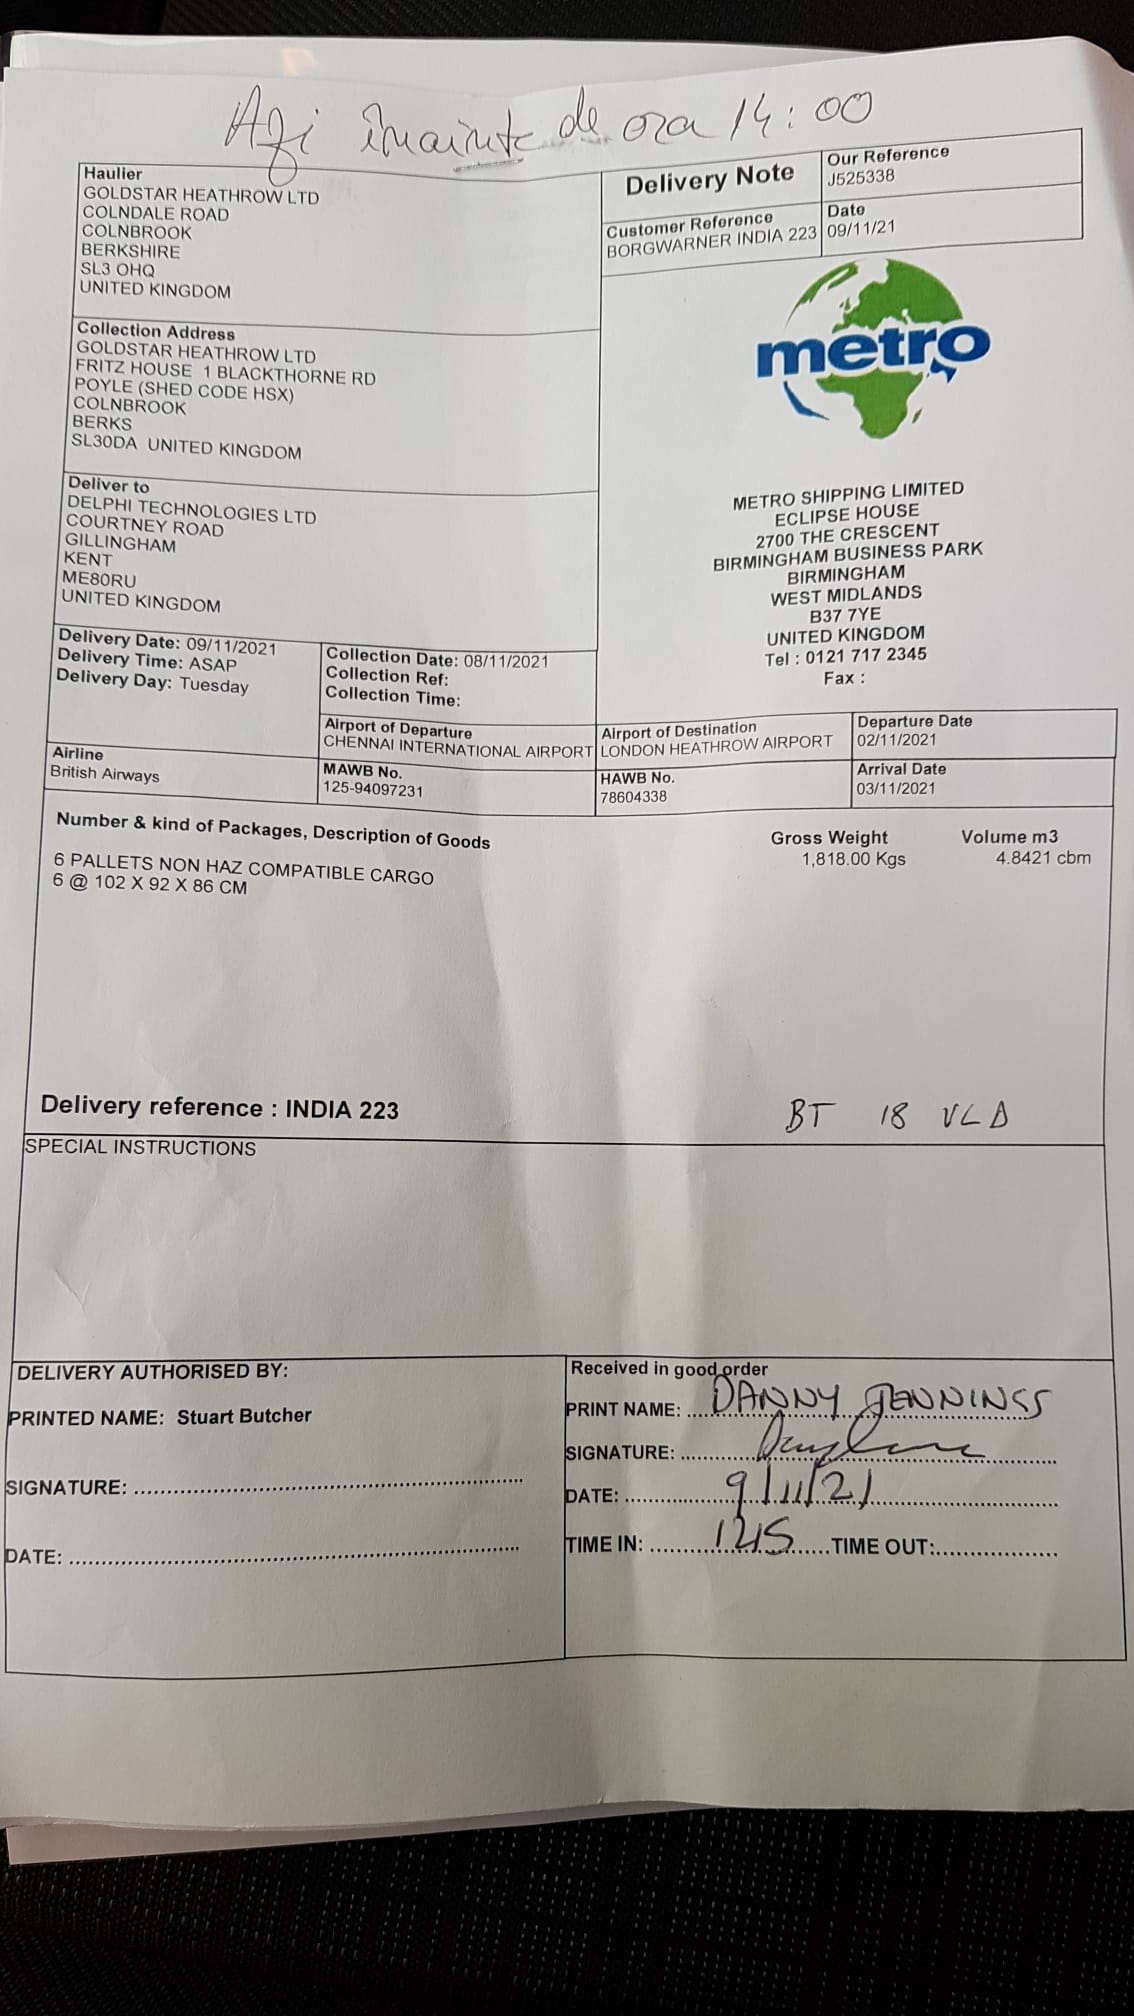 Azi înainte de ora 14:00
Haulier
GOLDSTAR HEATHROW LTD
COLNDALE ROAD
COLNBROOK
BERKSHIRE
SL3 OHQ
UNITED KINGDOM
Delivery Note
Our Reference
J525338
Customer Reference
BORGWARNER INDIA 223
Date
09/11/21
Collection Address
GOLDSTAR HEATHROW LTD
FRITZ HOUSE 1 BLACKTHORNE RD
POYLE (SHED CODE HSX)
COLNBROOK
BERKS
SL30DA UNITED KINGDOM
metro
Deliver to
DELPHI TECHNOLOGIES LTD
COURTNEY ROAD
GILLINGHAM
KENT
ME80RU
UNITED KINGDOM
METRO SHIPPING LIMITED
ECLIPSE HOUSE
2700 THE CRESCENT
BIRMINGHAM BUSINESS PARK
BIRMINGHAM
WEST MIDLANDS
B37 7YE
UNITED KINGDOM
Tel : 0121 717 2345
Fax :
Delivery Date: 09/11/2021
Delivery Time: ASAP
Delivery Day: Tuesday
Collection Date: 08/11/2021
Collection Ref:
Collection Time:
Airport of Departure
CHENNAI INTERNATIONAL AIRPORT
Airport of Destination
LONDON HEATHROW AIRPORT
Departure Date
02/11/2021
Airline
British Airways
MAWB No.
125-94097231
HAWB No.
78604338
Arrival Date
03/11/2021
Number & kind of Packages, Description of Goods
Gross Weight
Volume m3
6 PALLETS NON HAZ COMPATIBLE CARGO
1,818.00 Kgs
4.8421 cbm
6 @ 102 X 92 X 86 CM
Delivery reference : INDIA 223
BT 18 VLD
SPECIAL INSTRUCTIONS
DELIVERY AUTHORISED BY:
PRINTED NAME: Stuart Butcher
SIGNATURE:
DATE:
Received in good order
PRINT NAME: DANNY JENNINGS
SIGNATURE:
DATE: 9/11/21
TIME IN: 1215 TIME OUT: